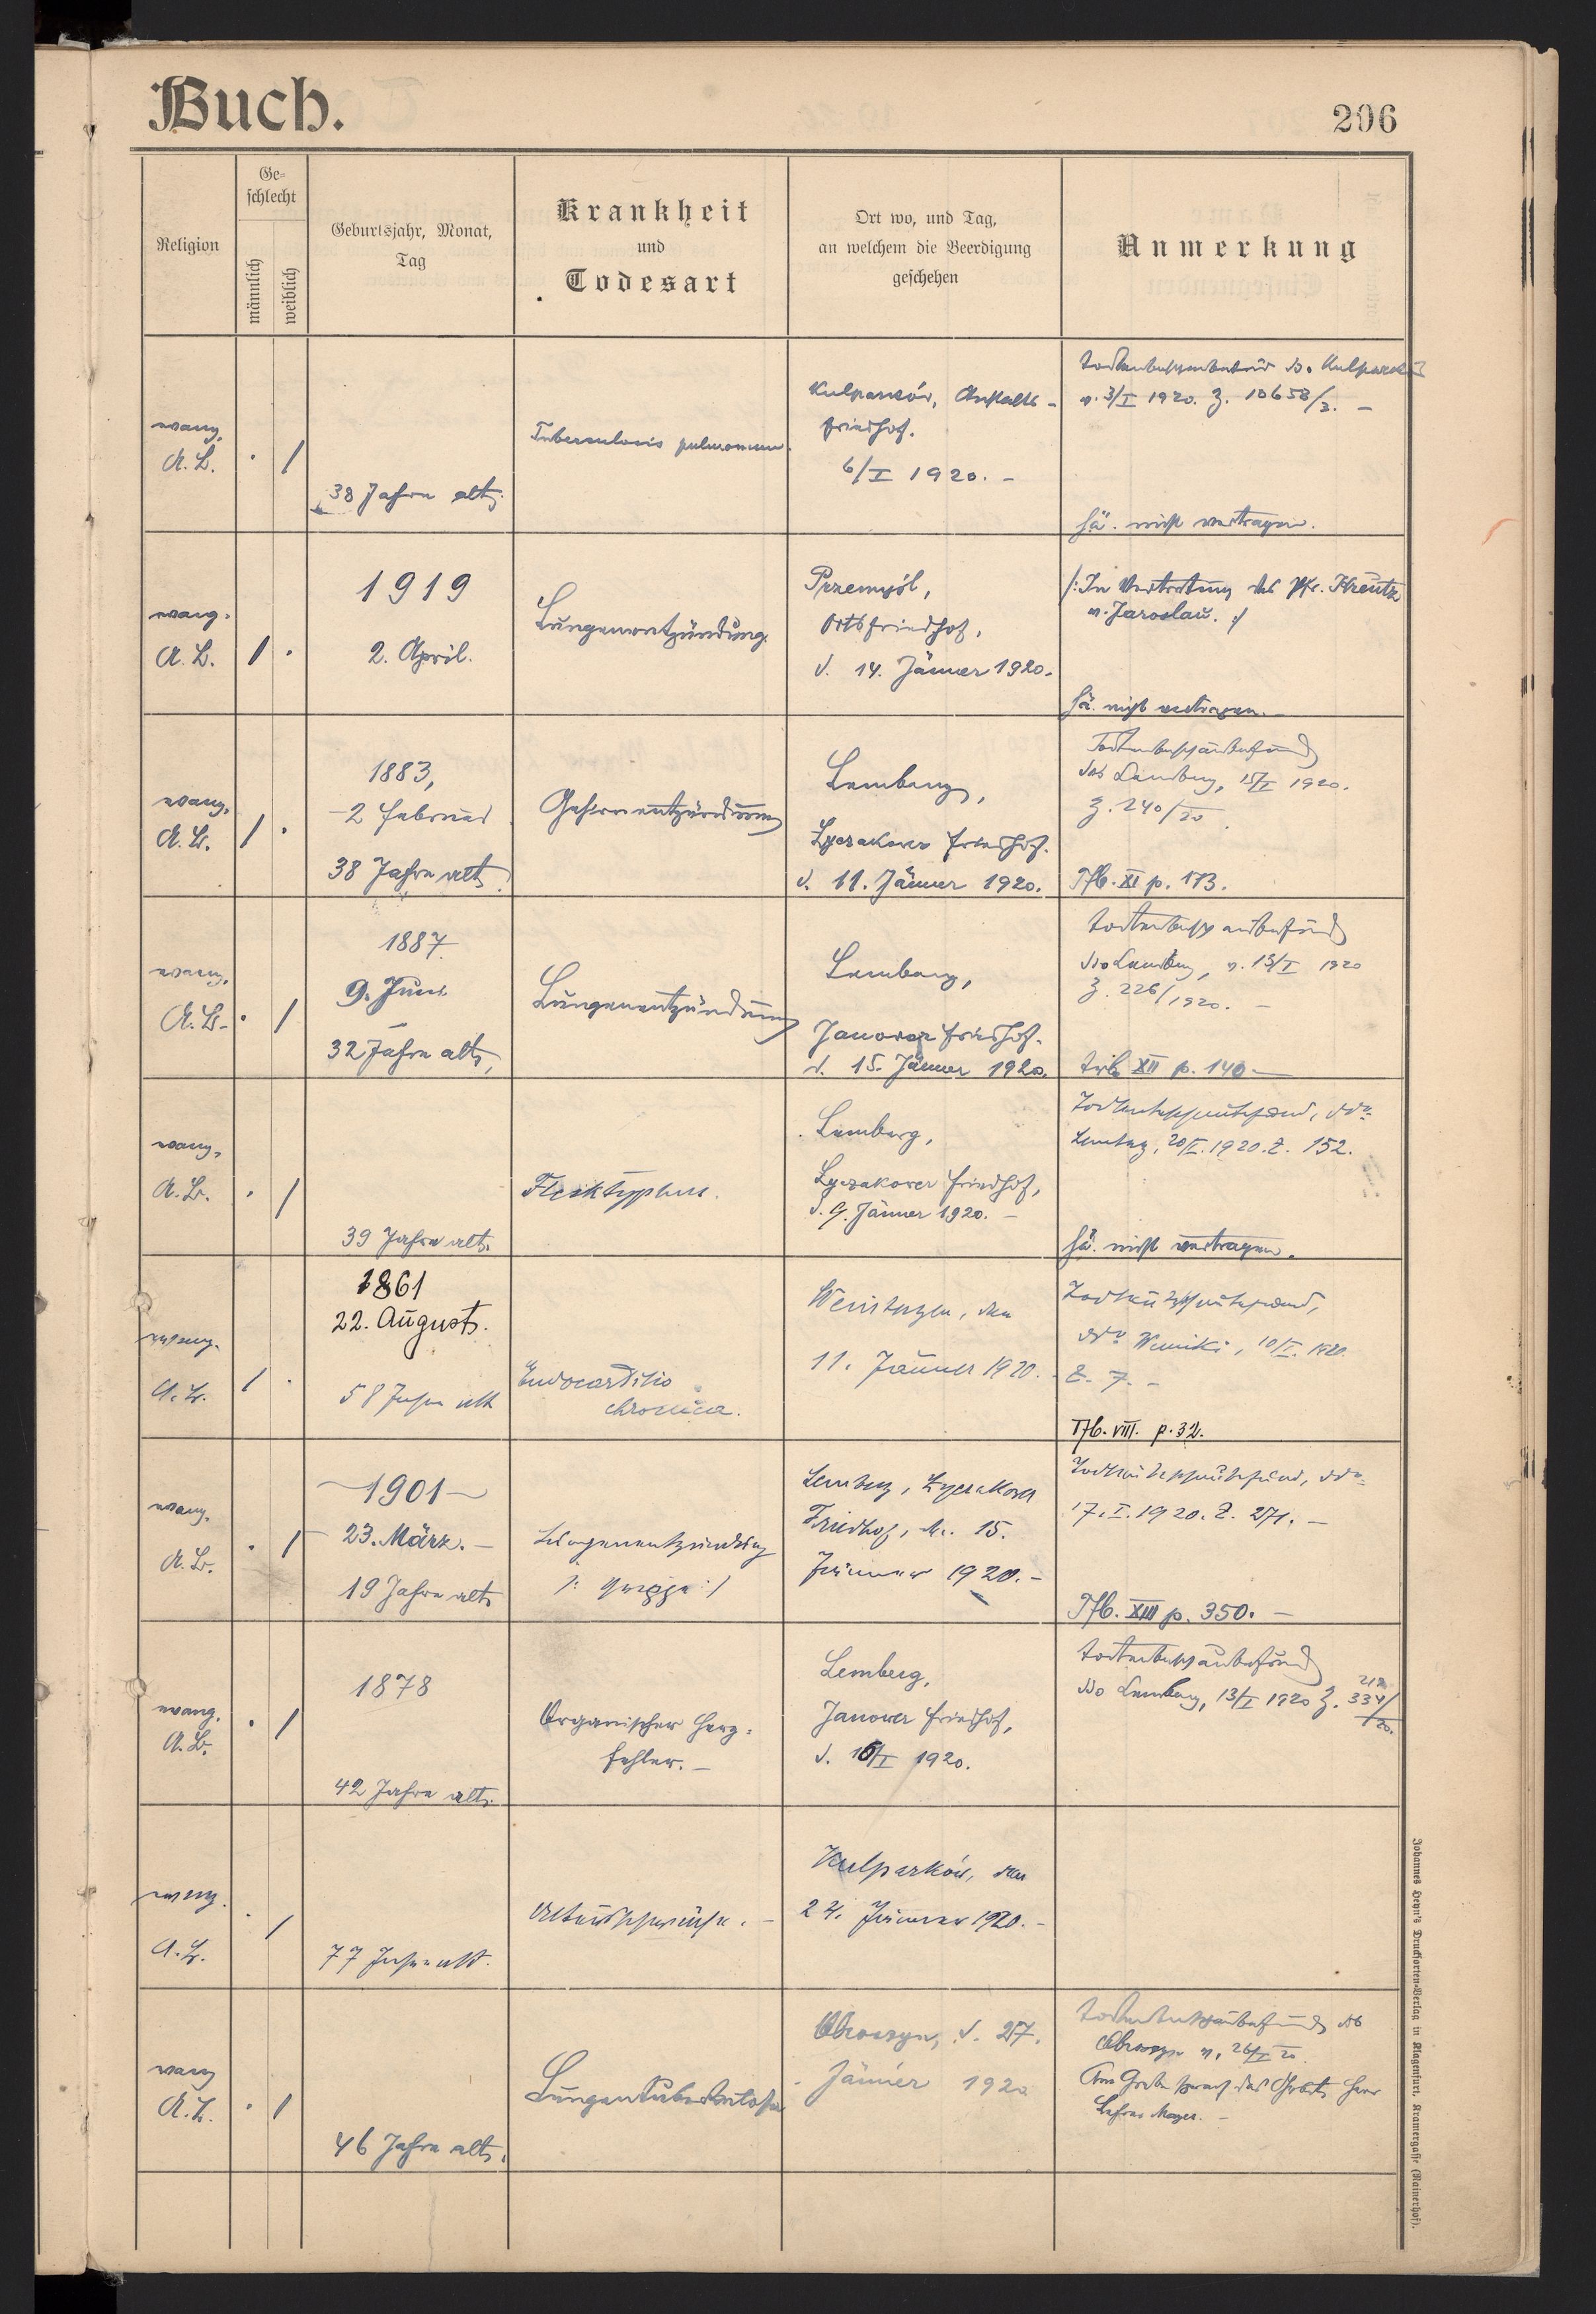 Buch.
206
Religion
Ge=
schlecht
männlich
weiblich
Geburtsjahr, Monat,
Tag
Krankheit
und
Todesart
Ort wo, und Tag,
an welchem die Beerdigung
geschehen
Anmerkung
evang.
A. B.
· /
38 Jahre alt.
Tuberculosis pulmonum.
Kulparków, Anstalts-
friedhof.
6/I 1920. –
Todtenbeschaubefund do. Kulparków
v. 3/I 1920. Z. 10658/3. –
hä. nicht vertragen.
evang.
A. B.
/ ·
1919
2. April.
Lungenentzündung.
Przemyśl,
Ortsfriedhof,
d. 14. Jänner 1920.
/: In Vertretung des Pfr. Kreutz
v. Jaroslau. :/
hä. nicht vertragen.
evang.
A. B.
/ ·
1883,
2 Februar
38 Jahre alt
Gehirnentzündung
Lemberg,
Lyczakower Friedhof.
d. 11. Jänner 1920.
Todtenbeschaubefund
ddo Lemberg, 15/I 1920.
Z. 240/20.
Tfb. XI p. 173.
evang.
A. B.
· /
1887
9. Juni
32 Jahre alt,
Lungenentzündung
Lemberg,
Janower Friedhof.
d. 15. Jänner 1920.
Todtenbeschaubefund
ddo Lemberg, v. 13/I 1920
Z. 226/1920. –
XII p. 140 –
evang.
A. B.
· /
39 Jahre alt.
Flecktyphus.
Lemberg,
Lyczakower Friedhof,
d. 9. Jänner 1920. –
Todtenbeschaubefund, ddo
Lemberg, 20/I. 1920. Z. 152.
hä. nicht vertragen.
evang.
A. B.
/ ·
1861
22. August.
58 Jahre alt
Endocarditis
chronica.
Weinbergen, den
11. Jänner 1920. –
Todtenbeschaubefund,
ddo Winniki, 10/I. 1920.
Z. 7. –
Tfb. VIII. p. 32.
evang.
A. B.
· /
1901
23. März. –
19 Jahre alt
Lungenentzündung
/: Grippe :/
Lemberg, Lyczakower
Friedhof, den 15.
Jänner 1920. –
Todtenbeschaubefund, ddo
17. I. 1920. Z. 271. –
Tfb. XIII p. 350. –
evang.
A. B.
· /
1878
42 Jahre alt.
Organischer Herz-
fehler. –
Lemberg,
Janower Friedhof,
d. 15/I 1920.
Todtenbeschaubefund
ddo Lemberg, 13/I 1920 Z. 334/20.
evang.
A. B.
· /
77 Jahre alt.
Altersschwäche. –
Kulparków, den
24. Jänner 1920. –
evang
A. B.
· /
46 Jahre alt.
Lungentuberkulose
Obroszyn, d. 27.
Jänner 1920
Todtenbeschaubefund ddo
Obroszyn v. 26/I 20
Am Grabe sprach das Gebet Herr
Lehrer Mayer. –
Johannes Heyn's Drucksorten-Verlag in Klagenfurt, Kramergasse (Rainerhof).